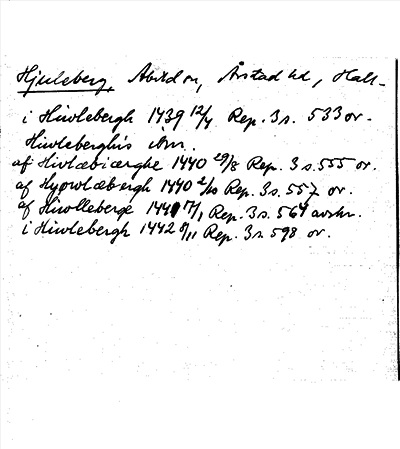 Hjuleberg, Abild sn, Årstad hd, Hall-
i Hiwlebergh 1439 12/4 Rep. 3 s. 533 or.
Hiwleberghis ibm.
af Hiwlæbiærghe 1440 29/8 Rep. 3 s. 555 or.
af Hyowlæbergh 1440 2/10 Rep. 3 s. 557 or.
af Hiwolleberge 1441 17/1 Rep. 3 s. 564 avskr.
i Hiwlebergh 1442 8/11 Rep. 3 s. 598 or.